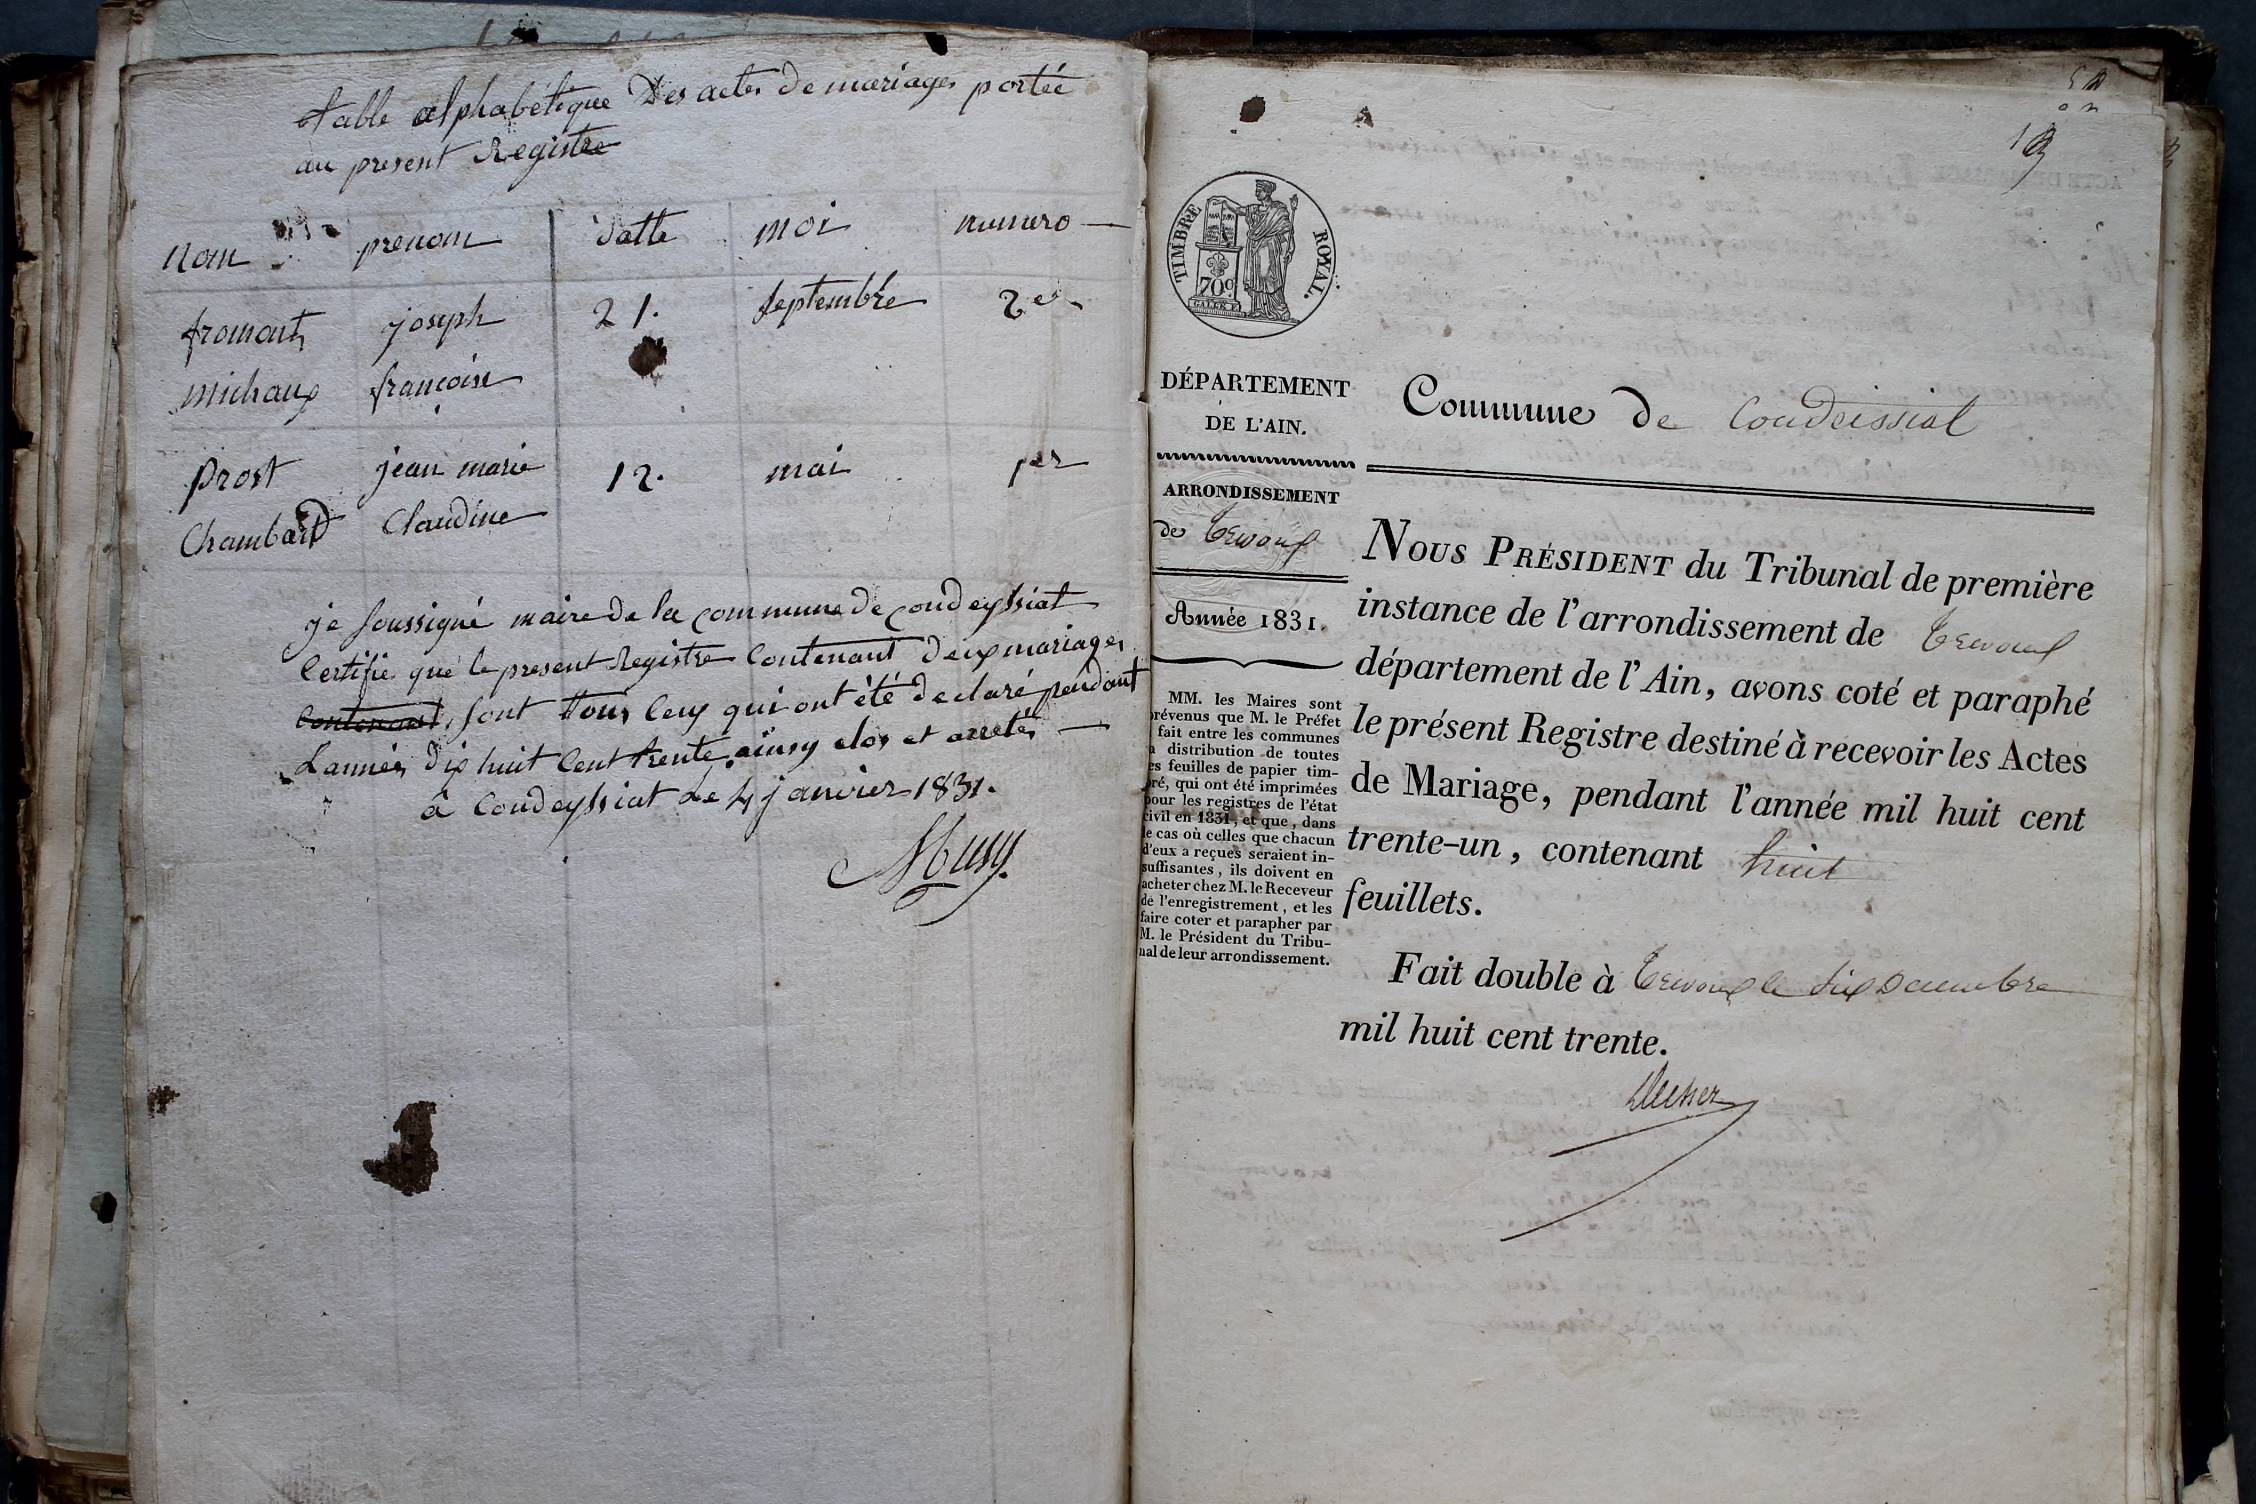 table alphabétique Des actes de mariages portée
au present Registre
nom prenom datte moi numero
fromont joseph 21. septembre 2e
michaux françoise
prost jean marie 12. mai 1er
Chambard Claudine
je soussigné maire de la commune de condeyssiat
Certifie que le present Registre Contenant deux mariages
contenant, sont tous ceux qui ont été declaré pendant
L'année dix huit Cent trente, ainsy clos et arretés
à Condeyssiat Le 4 janvier 1831.
Musy
TIMBRE ROYAL.
70c
DÉPARTEMENT
DE L'AIN.
ARRONDISSEMENT
de Trevoux
Année 1831.
MM. les Maires sont
prévenus que M. le Préfet
fait entre les communes
la distribution de toutes
les feuilles de papier tim-
bré, qui ont été imprimées
pour les registres de l'état
civil en 1831, et que, dans
le cas où celles que chacun
d'eux a reçues seraient in-
suffisantes, ils doivent en
acheter chez M. le Receveur
de l'enregistrement, et les
faire coter et parapher par
M. le Président du Tribu-
nal de leur arrondissement.
Commune de Condeissiat
NOUS PRÉSIDENT du Tribunal de première
instance de l'arrondissement de Trevoux
département de l'Ain, avons coté et paraphé
le présent Registre destiné à recevoir les Actes
de Mariage, pendant l'année mil huit cent
trente-un, contenant huit
feuillets.
Fait double à Trevoux le dix Decembre
mil huit cent trente.